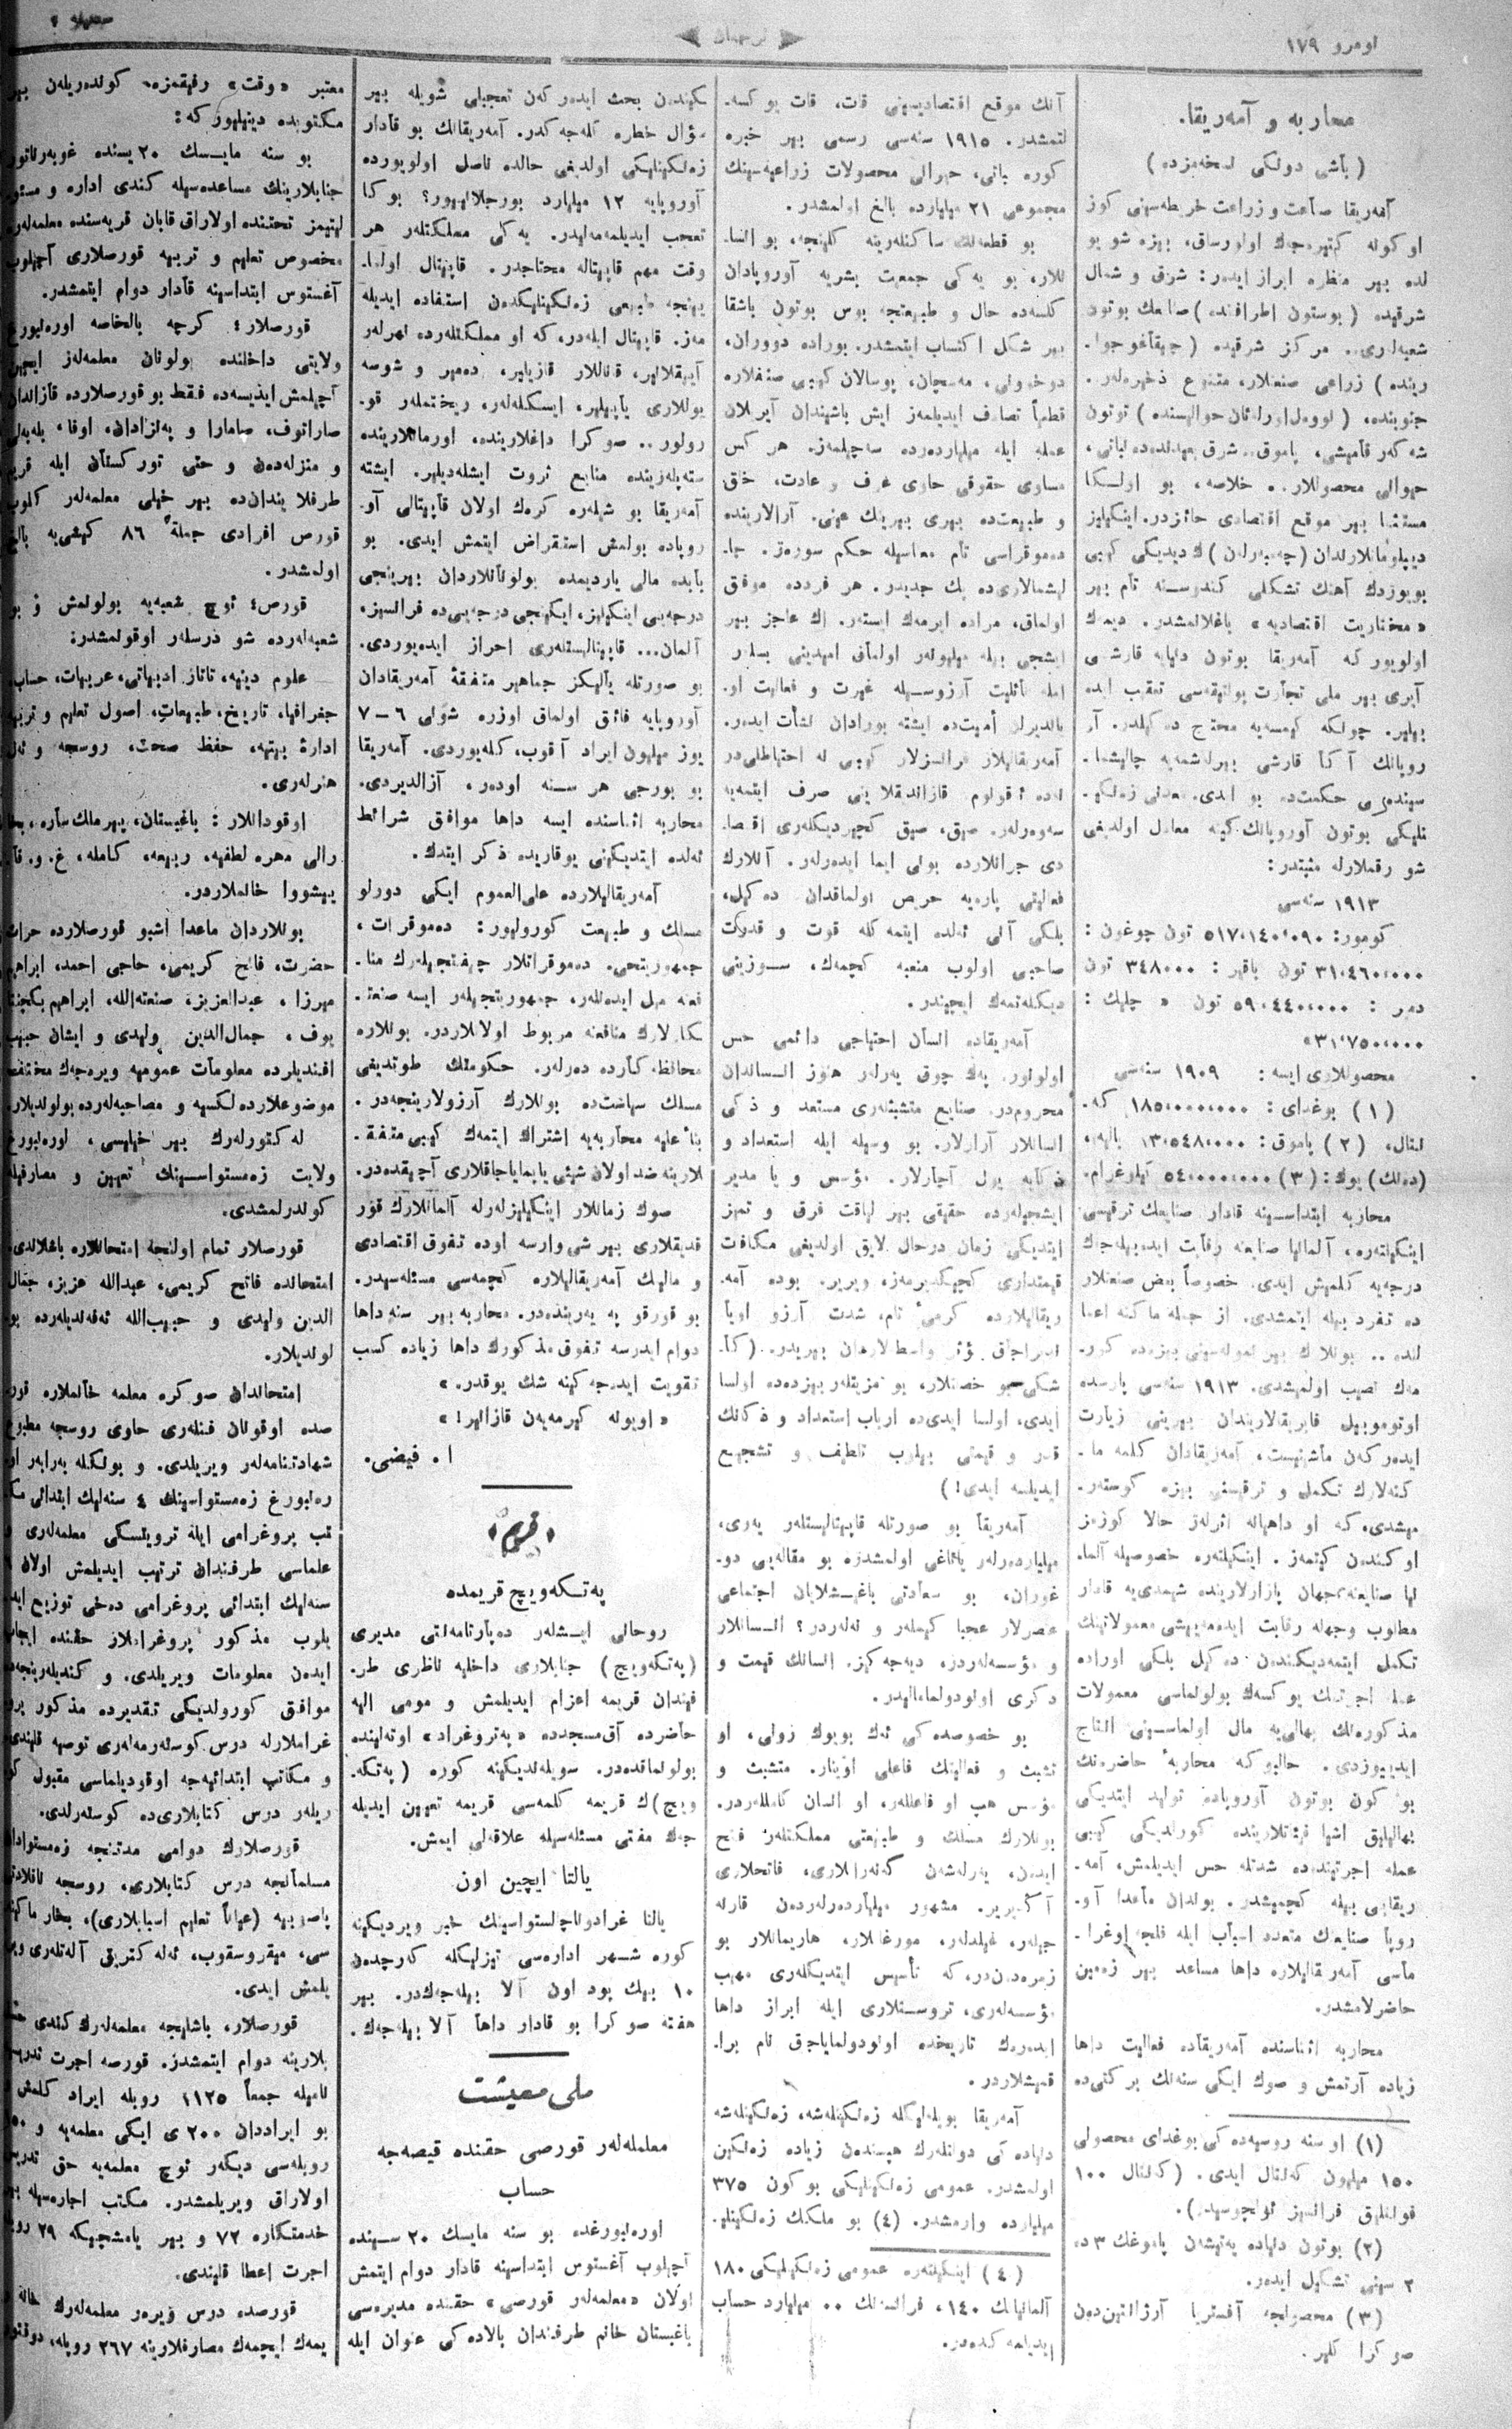 نومرو ١٧٩
ترجمان
صحیفه ٢
محاربه و آمەریقا.
(باشی دونکی نسخه‌مزده)
آمەریقا صناعت و زراعت خریطه‌سینی کوز
اوکونه کەتیرەجەك اولورساق، بیزه شو یو
لده بیر منظره ابراز ایدەر: شرق و شمال
شرقیده (بوستون اطرافنده) صنایعك بوتون
شعبه‌لری.. مرکز شرقیده (چیقاغو جوا۔
رینده) زراعی صنعتلار، متنوع ذخیره‌لەر.
جنوبنده، (نووەل اورلەئان حوالیسنده) توتون
شەکەر قامیشی، پاموق..
حیوانی محصوللار.. خلاصه، بو اولکا
مستثنا بیر موقع اقتصادی حائزدر. اینکیلیز
دیپلوماتلارندان (چەمبەرلەن)ك دیدیکی کیبی
بویوزدك آهنك تشکلی کندوسنه تام بیر
«مختاریت اقتصادیه» باغلامشدر. دیمەك
اولویور که آمەریقا بوتون دنیایه قارشی
آیری بیر ملی تجارت پولیتیقه‌سی تعقیب ایده
بیلیر. چونکه کیمسه‌یه محتاج دەکیلدر. آو
روپانك آکا قارشی بیرلەشمەیه چالیشما۔
سینده‌کی حکمت‌ده بو ایدی. معدنی زەنکیـ
نلیکی بوتون آوروپانك‌کینه معادل اولدیغی
شو رقملارله مثبتدر:
١٩١٣ سنه‌سی
کومور: ٥١٧،١٤٠،٠٩٠ تون چوغون:
٣١،٤٦٠،٠٠٠ تون باقیر: ٣٤٨،٠٠٠ تون
دمیر: ٥٩،٤٤٠،٠٠٠ تون « چلیك:
٣١،٧٥٠،٠٠٠»
محصوللاری ایسه: ١٩٠٩ سنه‌سی
(١) بوغدای: ١٨٥،٠٠٠،٠٠٠ کەـ
نتال، (٢) پاموق: ١٣،٥٤٨،٠٠٠ بالیه،
(دەنك) یوك: (٣) ٥٤،٠٠٠،٠٠٠ کیلوغرام.
محاربه ابتداسینه قادار صنایعك ترقیسی
اینکیلتەره، آلمانیا صنایعنه رقابت ایده‌بیله‌جك
درجه‌یه کلمیش ایدی. خصوصاً بعض صنعتلار
ده تفرد بیله ایتمشدی. از جمله ماکنه اعما
لنده.. بونلارك بیر نمونه‌سینی بیزده‌ده کورـ
مەك نصیب اولمیشدی. ١٩١٣ سنه‌سی پارسده
اوتوموبیل فابریقالاریندان بیرینی زیارت
ایدەرکەن ماشینیست، آمەریقادان کلمه ما۔
کنه‌لارك تکمل و ترقیسنی بیزه کوستەرـ
میشدی، که او داهیانه اثرلەر حالا کوزمز
اوکندن کیتمەز. اینکیلتەره خصوصیله آلما۔
نیا صنایعنه جهان پازارلارینده شیمدی‌یه قادار
مطلوب وجهله رقابت ایده‌مه‌ییشی معمولاتینك
تکمل ایتمه‌دیکندن دەکیل بلکی اوراده
عمله اجرتینك یوکسەك بولونماسی معمولات
مذکوره‌نك بهالی‌یه مال اولماسینی انتاج
ایدییوزدی. حالبوکه محاربهٔ حاضره‌نك
بو کون بوتون آوروپاده تولید ایتدیکی
بهالیلیق اشیا فیئاتلارینده کورلدیکی کیبی
عمله اجرتینده‌ده شدتله حس ایدیلمش، آمەـ
ریقایی بیله کچمیشدر. بوندان ماعدا آوـ
روپا صنایعنك متعدد اسباب ایله فلجه اوغرا۔
ماسی آمەرقالیلاره داها مساعد بیر زمین
حاضرلامشدر.
محاربه اثناسنده آمەریقاده فعالیت داها
زیاده آرتمش و صوك ایکی سنه‌نك برکتی‌ده
(١) او سنه روسیه‌ده‌کی بوغدای محصولی
١٥٠ میلیون کەنتال ایدی. (کەنتال ١٠٠
فونتلیق فرانسیز ئولچوسیدر).
(٢) بوتون دنیاده یەتیشەن پاموغك ٣ده
٢ سینی تشکیل ایدەر.
(٣) محصولجه آفستریا آرژانتین‌دەن
صوکرا کلیر.
آنك موقع اقتصادیسینی قات، قات یوکسەـ
لتمشدر. ١٩١٥ سنه‌سی رسمی بیر خبره
کوره باتی، حیوانی محصولات زراعیه‌سینك
مجموعی ٢١ میلیارده بالغ اولمشدر.
بو قطعه‌نك ساکنلەرینه کلینجه، بو انسا۔
نلار، بو یەکی جمعیت بشریه آوروپادان
کلسه‌ده حال و طبیعتجه بوس بوتون باشقا
بیر شکل اکتساب ایتمشدر. بوراده دووران،
دوخوولی، مەسیجان، پوسالان کیبی صنفلاره
قطعیاً تصادف ایدیلمەز ایش باشیندان آیریلان
عمله ایله میلیاردەرده سەچیلمەز. هر کس
مساوی حقوقی حاوی عرف و عادت، خلق
و طبیعت‌ده بیری بیرینك عینی. آرالارینده
دەموقراسی تام معناسیله حکم سورەر. چا۔
لیشمالاری‌ده پك جدیدر. هر فردده موفق
اولماق، مراده ایرمەك ایستەر. اك عاجز بیر
ایشجی بیله میلیونەر اولمانی امیدینی بسلەر
امله نائلیت آرزوسیله غیرت و فعالیت او۔
یاندیران أمنیت‌ده ایشته بورادان نشأت ایدەر.
آمەریقالیلار فرانسزلار کیبی نه احتیاطلی‌در
نەده ئقونوم قازاندیقلارینی صرف ایتمەیه
سەوەرلەر. صیق، صیق کچیردیکلەری اقتصا۔
دی جراتلارده بونی ایما ایدەرلەر. آنلارك
فعالیتی پاره‌یه حریص اولماقدان دەکیل،
بلکی آنی ئەلده ایتمەکله قوت و قدرت
صاحبی اولوب منصبه کچمەك، سوزینی
دیکلەتمەك ایچیندر.
آمەریقاده انسان احتیاجی دائمی حس
اولونور. پەك چوق یەرلەر هنوز انسانلدان
محروم‌در. صنایع متشبثلەری مستعد و ذکی
انسانلار آرارلار. بو وسیله ایله استعداد و
ذکایه یول آچارلار. مؤسس و یا مدیر
ایشجیلەرده حقیقی بیر لیاقت فرق و تمیز
ایتدیکی زمان درحال لایق اولدیغی مکافات
قیمتداری کچیکدیرمەز، ویریر. بوده آمەـ
ریقالیلارده کرمیٔ تام، شدت آرزو اویا
ندیراجاق مؤثر واسطالاردان بیریدر. (کا۔
شکی بو خصلتلار، بو مزیتلەر بیزده‌ده اولسا
ایدی، اولسا ایدی‌ده ارباب استعداد و ذکانك
قدر و قیمتی بیلنوب تلطیف و تشجیع
ایدیلسه ایدی!)
آمەریقا بو صورتله قاپیتالیستلەر یەری،
میلیاردەرلەر یاتاغی اولمشدزه بو مقاله‌یی دو۔
غوران، بو سعادتی باغیشلایان اجتماعی
عنصرلار عجبا کیملەر و نەلەردر؟ انسانلار
و مؤسسه‌لەردر، دیەجەکیز. انسانك قیمت و
ذکری اونودولمامالیدر.
بو خصوصده کی ئەك بویوك زولی، او
تشبث و فعالیتك فاعلی اوینار. متشبث و
مؤسس هپ او فاعللەر، او انسان کاملەردر.
بونلارك مسلك و طبیعتی مملکتلەر فتح
ایدەن، یەرلەشەن کەنەراللاری، فاتحلاری
آکدیریر. مشهور میلیاردەرلەردەن قارنه
جیلەر، غیلدلەر، مورغانلار، هاریمانلار بو
زمره‌دن‌در، که تأسیس ایتدیکلەری مهیب
مؤسسه‌لەری، تروستلاری ایله ابراز داها
ایدەرەك تاریخده اونودولمایاجاق نام براـ
قمیشلاردر.
آمەریقا بویله‌لیکله زەنکینلەشه، زەنکینلەشه
دنیاده کی دولتلەرك هیسندەن زیاده زەنکین
اولمشدر. عمومی زەنکینلیکی بو کون ٣٧٥
میلیارده وارمشدر. (٤) بو ملکك زەنکینلیـ
(٤) اینکیلتەره عمومی زەنکینلیکی ١٨٠
آلمانیانك ١٤٠، فرانسانك ٠٠ میلیارد حساب
ایدیلمەکده‌در.
کیندەن بحث ایدەرکەن تعجبلی شویله بیر
سؤال خطره کلەجەکدر. آمەریقانك بو قادار
زەنکینلیکی اولدیغی حالده ناصل اولویورده
آوروپایه ١٢ میلیارد بورجلانییور؟ بو کا
تعجب ایدیلمەمەلیدر. یەکی مملکتلەر هر
وقت مهم قاپیتاله محتاجدر. قاپیتال اولما۔
یینجه طبیعی زەنکینلیکدەن استفاده ایدیله
مەز. قاپیتال ایلەدر، که او مملکتلەرده نهرلەر
آییقلانیر، قاناللار قازیلیر، دەمیر و شوسه
یوللاری یاپیلیر، ایسکەلەلەر، ریختملەر قوـ
رولور.. صوکرا داغلارینده، اورمانلارینده
سته‌پلەرینده منابع ثروت ایشلەدیلیر. ایشته
آمەریقا بو شیلەره کرەك اولان قاپیتالی آوـ
روپاده بولمش استقراض ایتمش ایدی. بو
بابده مالی یاردیمده بولونانلاردان بیرینجی
درجه‌یی اینکیلیز، ایکینجی درجه‌یی‌ده فرانسیز،
آلمان... قاپیتالیستلەری احراز ایدەیوردی.
بو صورتله یالیکز جماهیر متفقهٔ آمەریقادان
آوروپایه فائق اولماق اوزره شولی ٦ـ٧
یوز میلیون ایراد آقوب، کلەیوردی. آمەریقا
بو بورجی هر سنه اودەر، آزالدیردی.
محاربه اثناسنده ایسه داها موافق شرائط
ئەلده ایتدیکنی یوقاریده ذکر ایتدك.
آمەریقالیلارده علی‌العموم ایکی دورلو
مسلك و طبیعت کورولیور: دەموقرات،
جمهوریتجی. دەموقراتلار چیفتچیلەرك منا۔
فعنه میل ایدەللەر، جمهوریتجیلەر ایسه صنعتـ
کارلارك منافعنه مربوط اولانلاردر. بونلاره
محافظه‌کارده دەرلەر. حکومتك طوتدیغی
مسلك سیاستده بونلارك آرزولارینجەدر.
بنأ علیه محاربه‌یه اشتراك ایتمەك کیبی متفقـ
لارینه ضد اولان شیئی یاپمایاجاقلاری آچیقده‌در.
صوك زمانلار اینکیلیزلەرله آلمانلارك قور
قدیقلاری بیر شی وارسه اوده تفوق اقتصادی
و مالینك آمەریقالیلاره کچمه‌سی مسئله‌سیدر.
بو قورقو یه یەرینده‌در. محاربه بیر سنه داها
دوام ایدرسه تفوق مذکورك داها زیاده کسب
تقویت ایدەجەکینه شك یوقدر.»
«اویونه کیرمەیەن قازانیر!»
ا. فیضی.
«قریم»
پەتکەویچ قریمده
روحانی ایشلەر دەپارتامەنتی مدیری
(پەتکەویچ) جنابلاری داخلیه ناظری طر۔
فیندان قریمه اعزام ایدیلمش و مومی الیه
حاضرده آق‌مسجدده «پەتروغراد» اوتەلینده
بولونماقدەدر. سویلەندیکینه کوره (پەتکەـ
ویچ)ك قریمه کلمەسی قریمه تعیین ایدیله
جەك مفتی مسئله‌سیله علاقەلی ایمش.
یالتا ایچین اون
یالتا غرادوناچالستواسینك خبر ویردیکینه
کوره شهر اداره‌سی تیزلیکله کەرچدەن
١٠ بیك پود اون آلا بیلەجەکدر. بیر
هفته صوکرا بو قادار داها آلا بیلەجەك.
ملی معیشت
معلمه‌لەر قورصی حقنده قیصه‌جه
حساب
اورەنبورغده بو سنه مایسك ٢٠ سینده
آچیلوب آغستوس ابتداسینه قادار دوام ایتمش
اولان «معلمه‌لەر قورصی» حقنده مدیره‌سی
باغبستان خانم طرفندان بالاده کی عنوان ایله
معتبر «وقت» رفیقمزه کوندەریلەن بیر
مکتوبده دینیلیور که:
بو سنه مایسك ٢٠ یسنده غوبەرناتور
جنابلارینك مساعده‌سیله کندی اداره و مسئو
لیتیمز تحتنده اولاراق قابان قریه‌سنده معلمه‌لەره
مخصوص تعلیم و تربیه قورصلاری آچیلوب
آغستوس ابتداسینه قادار دوام ایتمشدر.
قورصلار٤ کرچه بالخاصه اورەنبورغ
ولایتی داخلنده بولونان معلمه‌لەر ایچین
آچیلمش ایدیسه‌ده فقط بو قورصلارده قازاندان
صاراتوف، صامارا و پەنزادان، اوفا، بلەبەی
و منزله‌دەن و حتی تورکستان ایله قریم
طرفلاریندان‌ده بیر خیلی معلمه‌لەر کلوب
قورص افرادی جملةً ٨٦ کیشی‌یه بالغ
اولمشدر.
قورص٤ ئوچ شعبه‌یه بولونمش و بو
شعبه‌لەرده شو درسلەر اوقولمشدر:
علوم دینیه، تاتار ادبیاتی، عربیات، حساب،
جغرافیا، تاریخ، طبیعات، اصول تعلیم و تربیه
ادارهٔ بیتیه، حفظ صحت، روسجه و ئەل
هنرلەری.
اوقوداللار: باغبستان، بیرملك ساره،
رالی مهره لطفیه، ربیعه، کامله، غ. و. فا
بیشووا خانملاردر.
بونلاردان ماعدا اشبو قورصلارده حراث
حضرت، فاتح کریمی، حاجی احمد، ابراهیم
میرزا، عبدالعزیز، صنعه‌الله، ابراهیم بکچنتا
یوف، جمال‌الدین ولیدی و ایشان حبیب
افندیلرده معلومات عمومیه ویرەجەك مختلف
موضوعلارده لکسیه و مصاحبه‌لەرده بولوندیلار.
لەکتورلەرك بیر خیلیسی، اورەنبورغ
ولایت زەمستواسینك تعیین و مصارفیله
کوندرلمشدی.
قورصلار تمام اولنجه امتحانلاره باغلاندی.
امتحانده فاتح کریمی، عبدالله عزیز، جمال
الدین ولیدی و حبیب‌الله ئەفەندیلەرده بو
لوندیلار.
امتحاندان صوکره معلمه خانملاره قور
صده اوقونان فنلەری حاوی روسجه مطبوع
شهادتنامه‌لەر ویریلدی. و بونکله برابەر او
رەنبورغ زەمستواسینك ٤ سنه‌لیك ابتدائی مکـ
تب پروغرامی ایله ترویتسکی معلمه‌لەری و
علماسی طرفندان ترتیب ایدیلمش اولان ٦
سنه‌لیك ابتدائی پروغرامی ده‌خی توزیع ایدـ
یلوب مذکور پروغراملار حقنده ایجاب
ایدەن معلومات ویریلدی. و کندیلەرینجه‌ده
موافق کورولدیکی تقدیرده مذکور پرو
غراملارله درس کوستەرمەلەری توصیه قلیندی
و مکاتب ابتدائیه‌جه اوقودیلماسی مقبول کو
ریلەر درس کتابلاری‌ده کوستەرلدی.
قورصلارك دوامی مدتنجه زەمستوادان
مسلمانجه درس کتابلاری، روسجه ناغلادنی
پاصوبیه (عیاناً تعلیم اسبابلاری)، بخار ماکینه
سی، میقروسقوب، ئەلەکتریق آلەتلەری ویر
یلمش ایدی.
قورصلار، باشلیجه معلمه‌لەرك کندی
بلارینه دوام ایتمشدر. قورصه اجرت تدریس
نامیله جمعاً ١١٢٥ روبله ایراد کلمش
بو ایراددان ٢٠٠ ی ایکی معلمه‌یه و ١٥٠
روبله‌سی دیگەر ئوچ معلمه‌یه حق تدریس
اولاراق ویریلمشدر. مکتب اجاره‌سیله بیر
خدمتکاره ٧٢ و بیر یامشجیکه ٢٩ روبله
اجرت اعطا قلیندی.
قورصده درس ویرەر معلمه‌لەرك خانه و
یمەك ایچمەك مصارفلارینه ٢٦٧ روبله، دوقتور